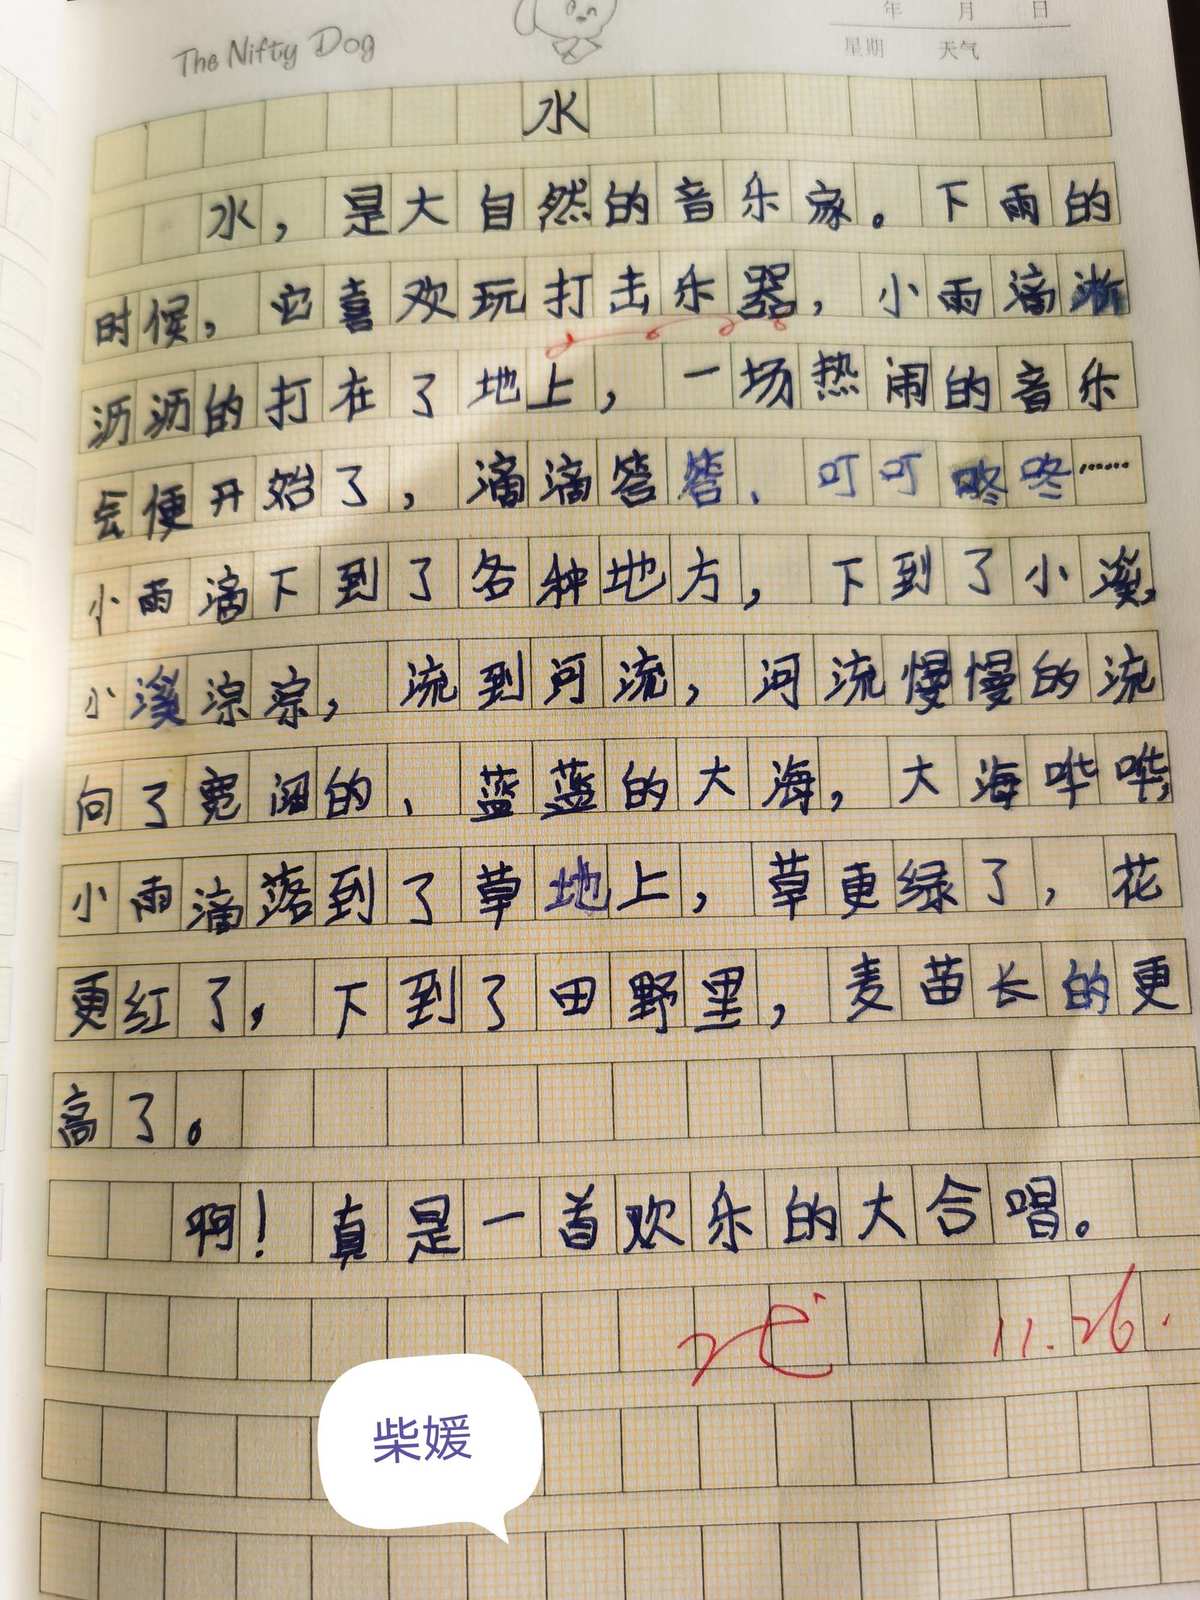 The Nifty Dog
年 月 日
星期 天气
水
水，是大自然的音乐家。下雨的
时候，它喜欢玩打击乐器，小雨滴淅
沥沥的打在了地上，一场热闹的音乐
会便开始了，滴滴答答、叮叮咚咚……
小雨滴下到了各种地方，下到了小溪，
小溪淙淙，流到河流，河流慢慢的流
向了宽阔的、蓝蓝的大海，大海哗哗，
小雨滴落到了草地上，草更绿了，花
更红了，下到了田野里，麦苗长的更
高了。
啊！真是一首欢乐的大合唱。
11.26.
柴媛